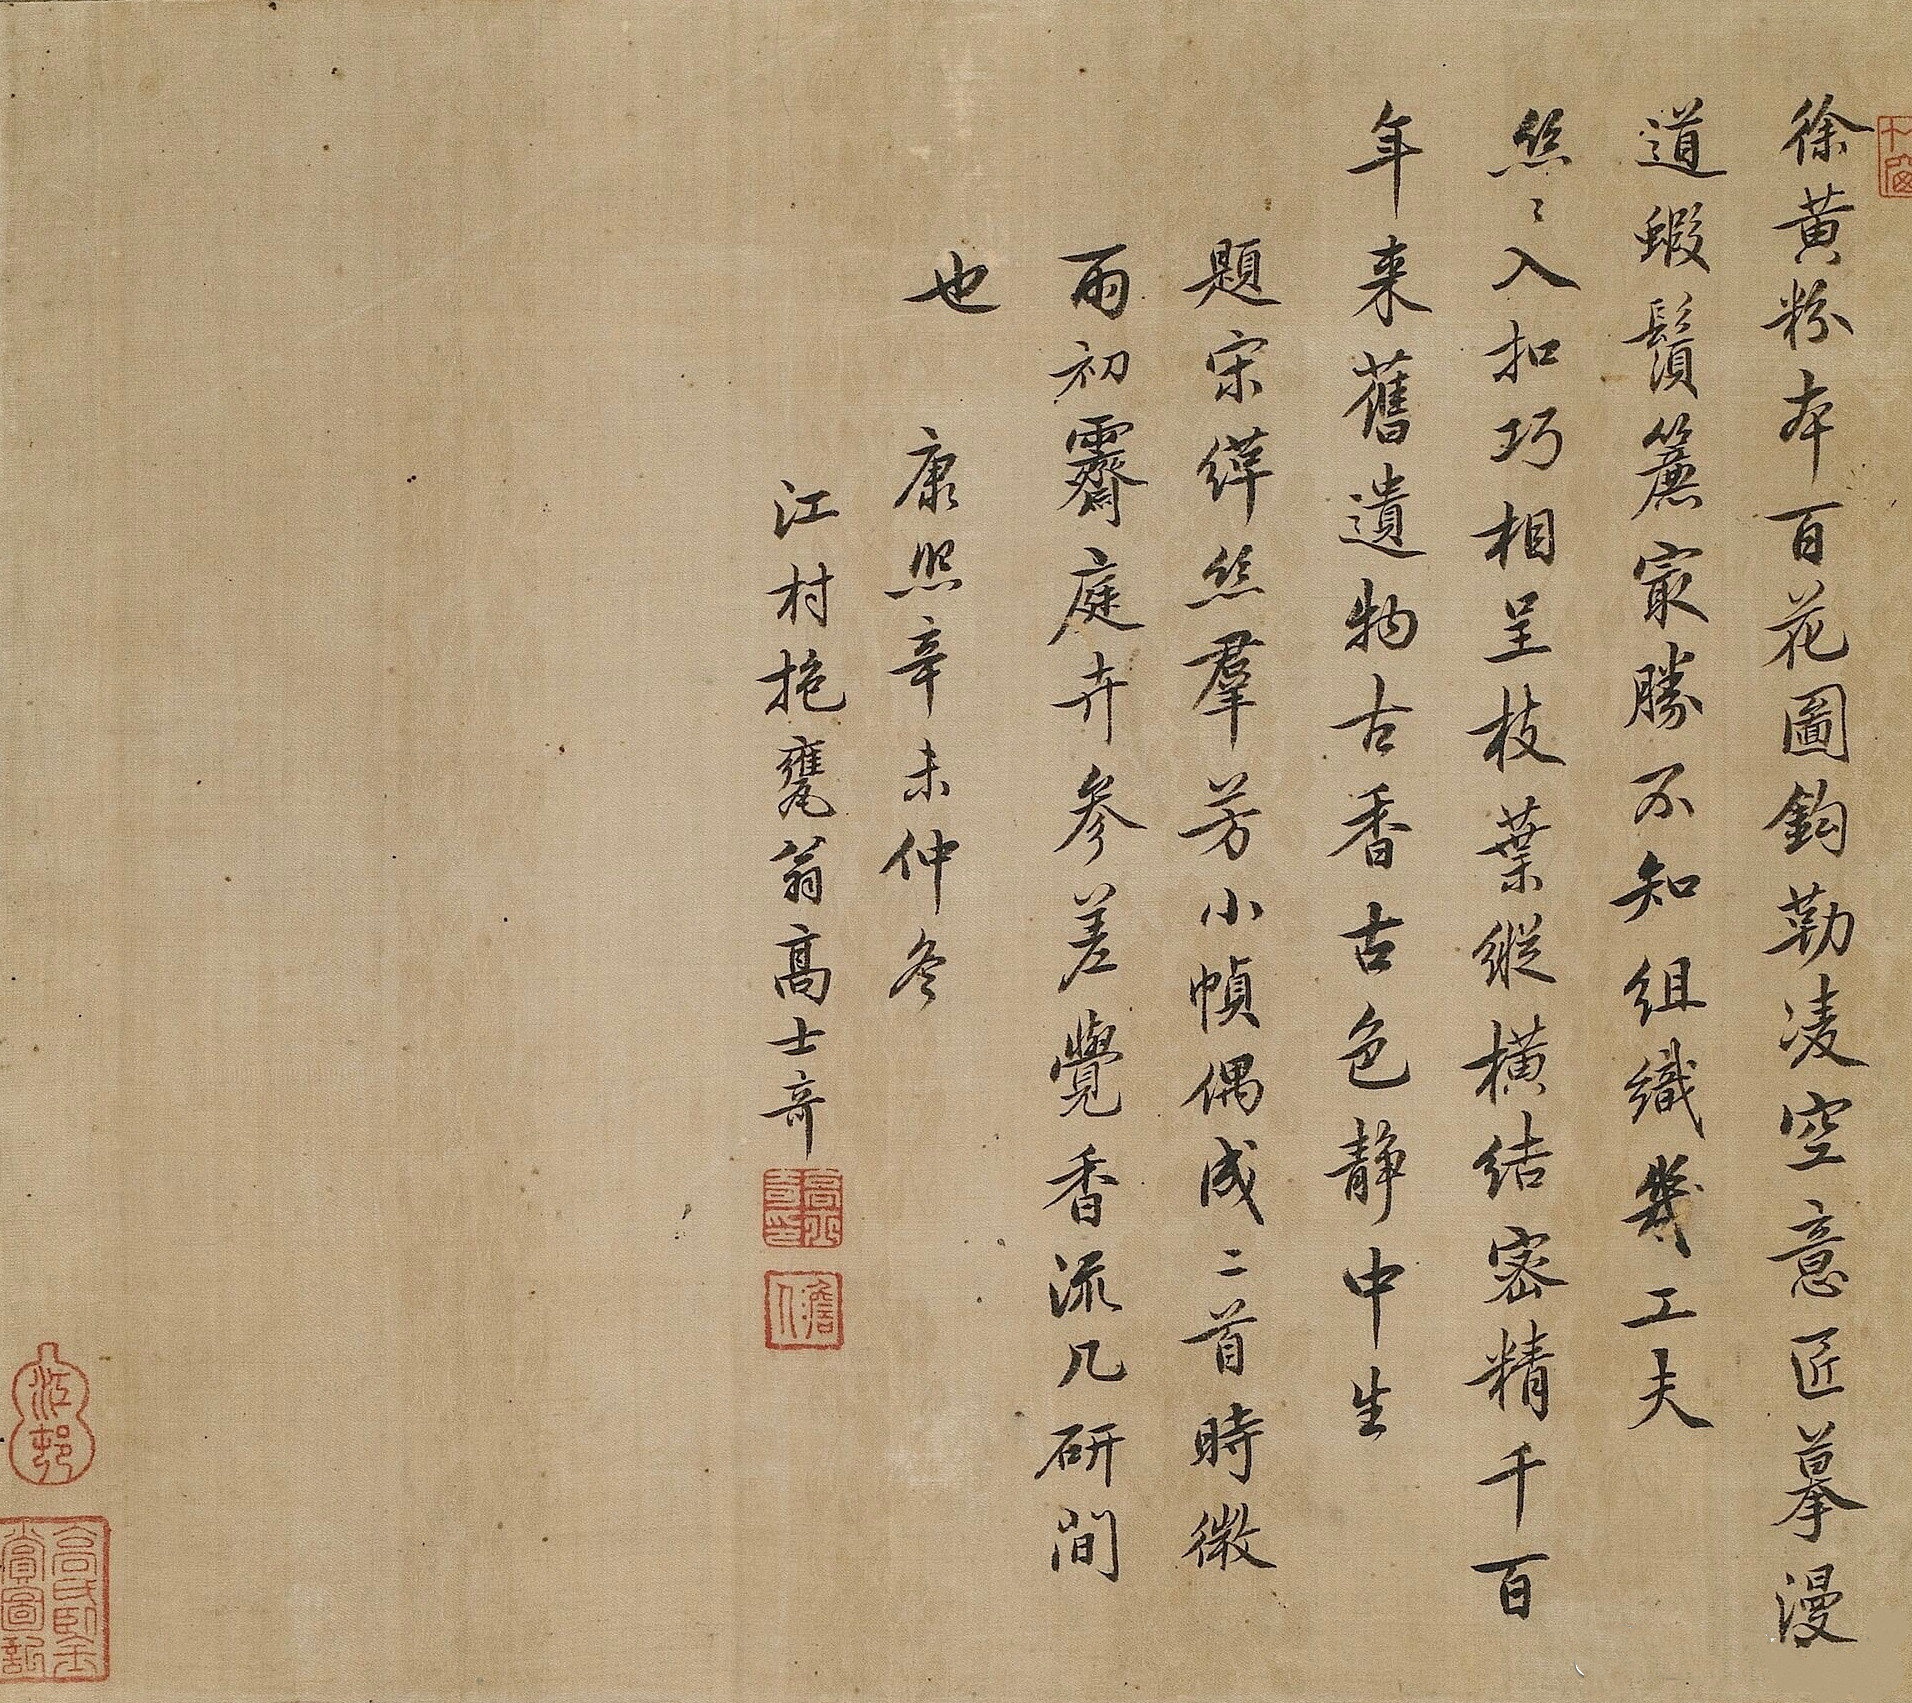 徐黃粉本百花圖鈎勒凌空意匠摹漫
道蝦鬚簾㝡勝不知組織幾工夫
絲〻入扣巧相呈枝葉縱橫結密精千百
年来舊遺物古香古色靜中生
題宋緙絲羣芳小幀偶成二首時微
雨初霽庭卉參差覺香流几研間
也
康熙辛未仲冬
江村抱甕翁高士奇
高士奇印
澹人
江邨
高氏臥
賞圖記